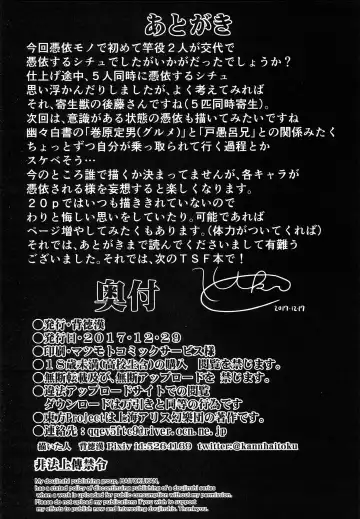 あとがき
今回憑依モノで初めて竿役2人が交代で
憑依するシチュでしたがいかがだったでしょうか？
仕上げ途中、5人同時に憑依するシチュ
思い浮かんだりしましたが、よく考えてみれば
それ、寄生獣の後藤さんですね（5匹同時寄生）。
次回は、意識がある状態の憑依も描いてみたいですね
幽々白書の「巻原定男(グルメ)」と「戸愚呂兄」との関係みたく
ちょっとずつ自分が乗っ取られて行く過程とか
スケベそう…
今のところ誰で描くか決まってませんが、各キャラが
憑依される様を妄想すると楽しくなります。
20pではいつも描ききれていないので
わりと悔しい思いをしていたり。可能であれば
ページ増やしてみたくもあります。（体力がついてくれば）
それでは、あとがきまで読んでくださいまして有難う
ございました。それでは、次のTSF本で！
2017.12.19
奥付
●発行・背徳漢
●発行日・2017・12・29
●印刷・マツモトコミックサービス様
●18歳未満(高校生含)の購入 閲覧を禁じます。
●無断転載及び、無断アップロードを 禁じます。
●違法アップロードサイトでの閲覧
ダウンロードは万引きと同等の行為です
●東方Projectは上海アリス幻樂団の著作です。
●連絡先：
描いた人 背徳漢 Pixiv twitter@kannhaitoku
非法上傳禁令
My doujinshi publishing group, HAITOKUKAN,
has a stated policy of discontinuing publishing of a doujinshi series
when a work is uploaded for public consumption without my permission.
Please do not upload this content to support
my efforts to publish new and interesting doujinshi. Thankyou.